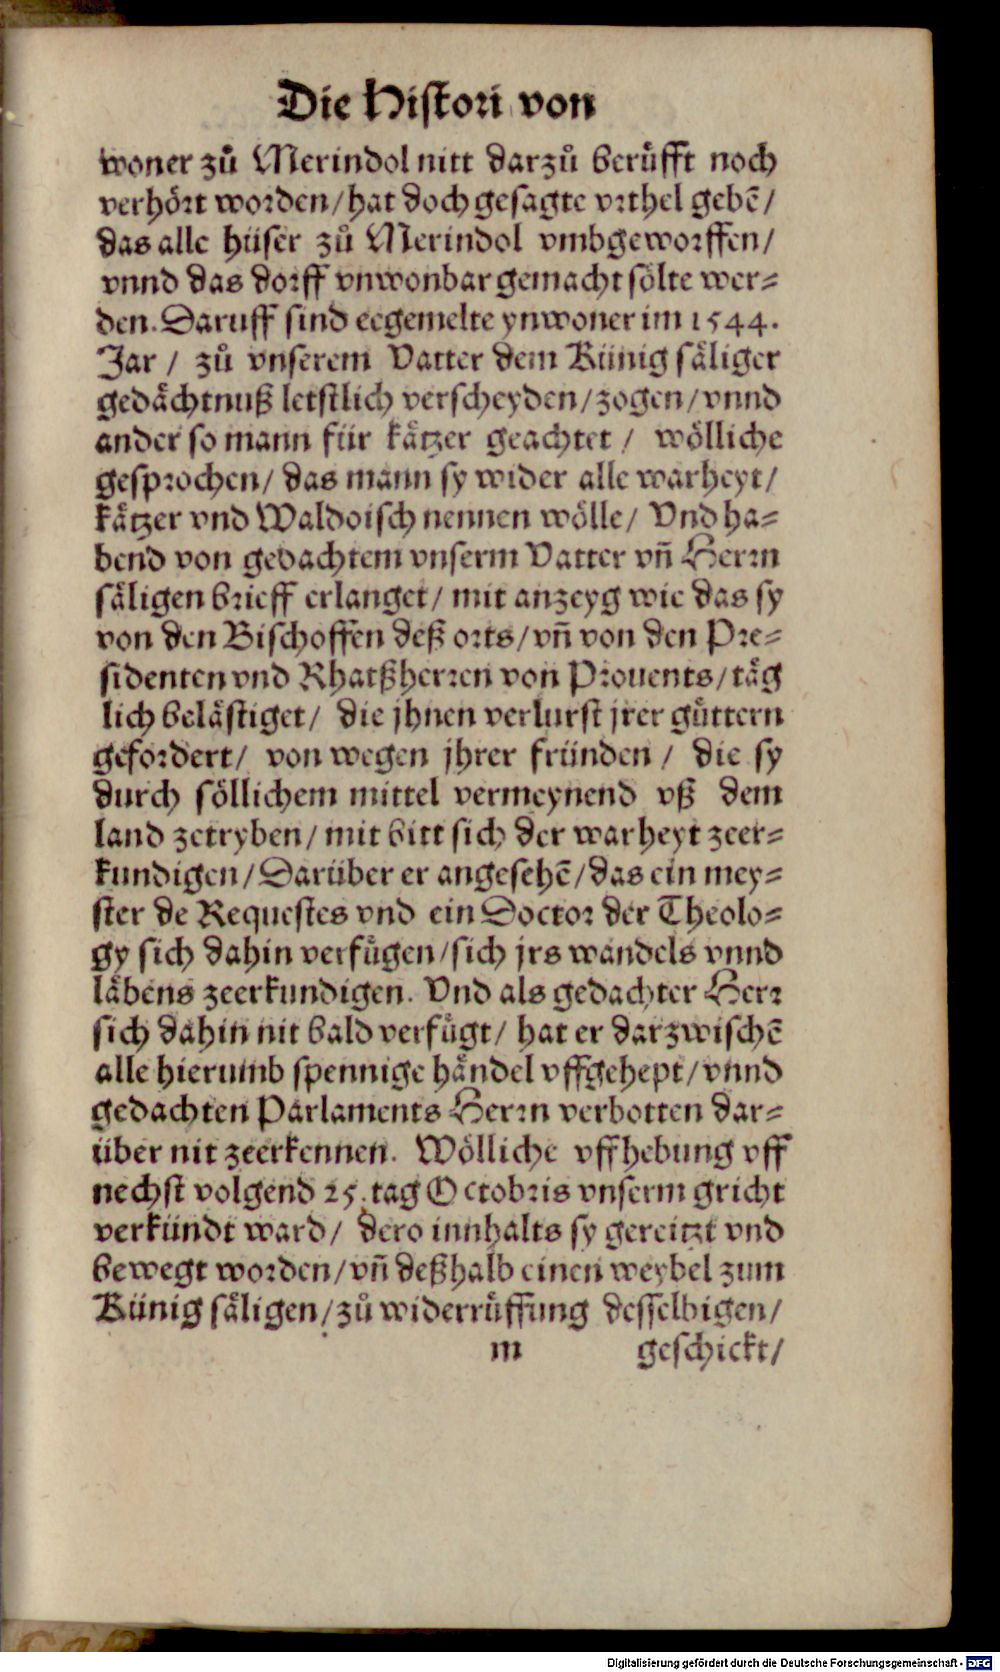 Die Histori von
woner zů Merindol nitt darzů berůfft noch
verhört worden/ hat doch gesagte vrthel gebē/
das alle hüser zů Merindol vmbgeworffen/
vnnd das dorff vnwonbar gemacht sölte wer-
den. Daruff sind eegemelte ynwoner im 1544.
Jar / zů vnserem Vatter dem Künig säliger
gedächtnuß letstlich verscheyden/ zogen/ vnnd
ander so mann für kätzer geachtet / wölliche
gesprochen/ das mann sy wider alle warheyt/
kätzer vnd Waldoisch nennen wölle/ Vnd ha-
bend von gedachtem vnserm Vatter vñ Herrn
säligen brieff erlanget/ mit anzeyg wie das sy
von den Bischoffen deß orts/ vñ von den Pre-
sidenten vnd Rhatßherren von Prouents/ täg
lich belästiget/ die jhnen verlurst jrer güttern
gefordert/ von wegen jhrer fründen / die sy
durch söllichem mittel vermeynend vß dem
land zetryben/ mit bitt sich der warheyt zeer-
kundigen/ Darüber er angesehē/ das ein mey-
ster de Requestes vnd ein Doctor der Theolo-
gy sich dahin verfügen/ sich jrs wandels vnnd
läbens zeerkundigen. Vnd als gedachter Herr
sich dahin nit bald verfügt/ hat er darzwischē
alle hierumb spennige händel vffgehept/ vnnd
gedachten Parlaments Herrn verbotten dar-
über nit zeerkennen. Wölliche vffhebung vff
nechst volgend 25. tag Octobris vnserm gricht
verkündt ward/ dero innhalts sy gereitzt vnd
bewegt worden/ vñ deßhalb einen weybel zum
Künig säligen/ zů widerrüffung desselbigen/
m geschickt/
Digitalisierung gefördert durch die Deutsche Forschungsgemeinschaft - DFG